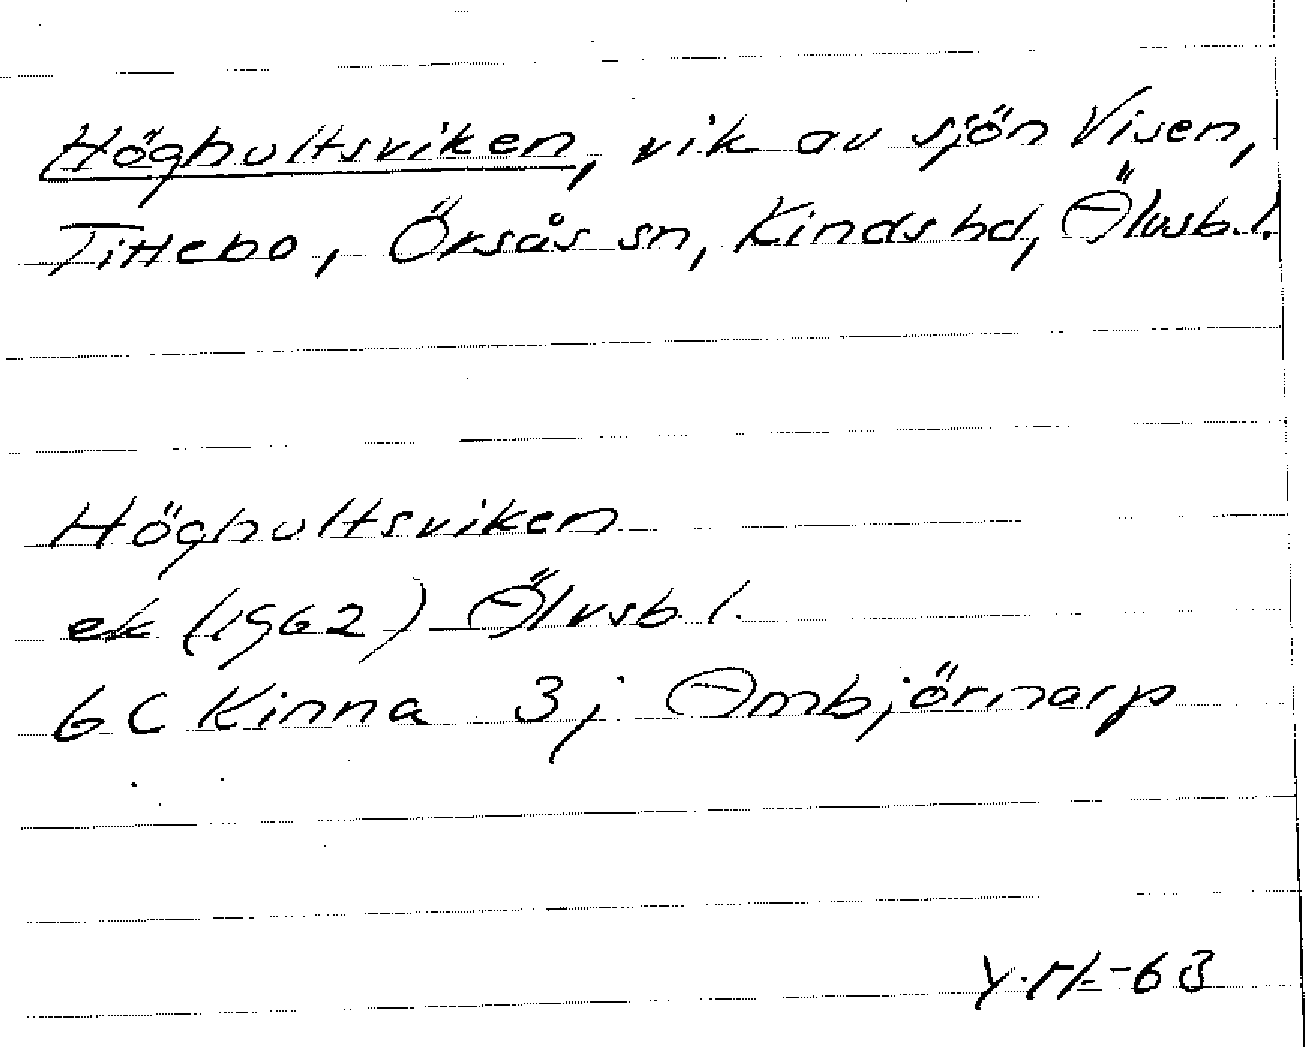 Höghultsviken, vik av sjön Visen,
Tittebo, Örsås sn, Kinds hd, Älvsb. l.
Höghultsviken
ek (1962) Älvsb. l.
6C Kinna 3j Ambjörnarp
-63